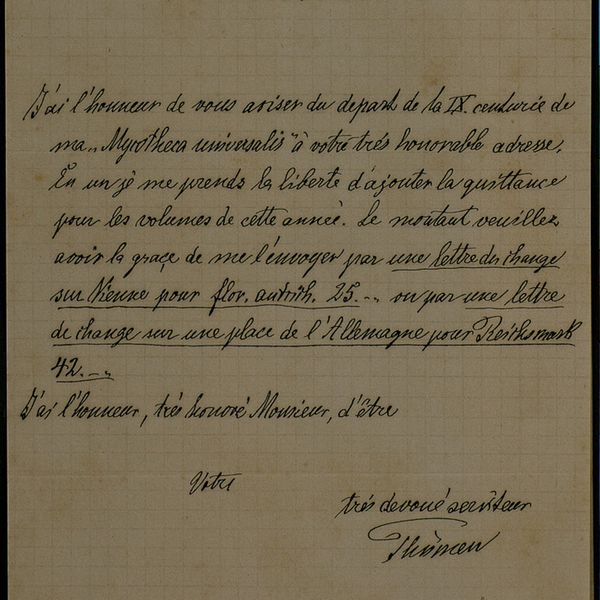 J'ai l'honneur de vous aviser du depart de la IX. centurie de
ma „Mycotheca universalis" à votre trés honorable adresse.
En un je me prends la liberté d'ajouter la quittance
pour les volumes de cette année. Le montant veuillez
avoir la graçe de me l'envoyer par une lettre du change
sur Vienne pour flor. autrich. 25.-- ou par une lettre
de change sur une place de l'Allemagne pour Reichsmark
42.--
J'ai l'honneur, trés honoré Monsieur, d'être
Votre
trés devoué serviteur
Thümen